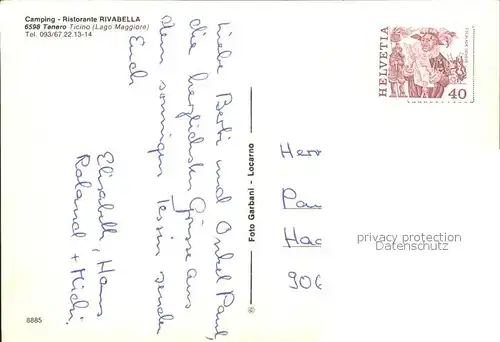 Camping - Ristorante RIVABELLA
6598 Tenero Ticino (Lago Maggiore)
Tel. 093/67.22.13-14
Liebe Berti und Onkel Paul,
die herzlichsten Grüsse aus
dem sonnigen Tessin senden
Euch
Elisabeth, Hans
Roland + Michi
8885
Foto Garbani - Locarno
HELVETIA
40
Herr
Pau
Hac
906
privacy protection
www.oldthing.de